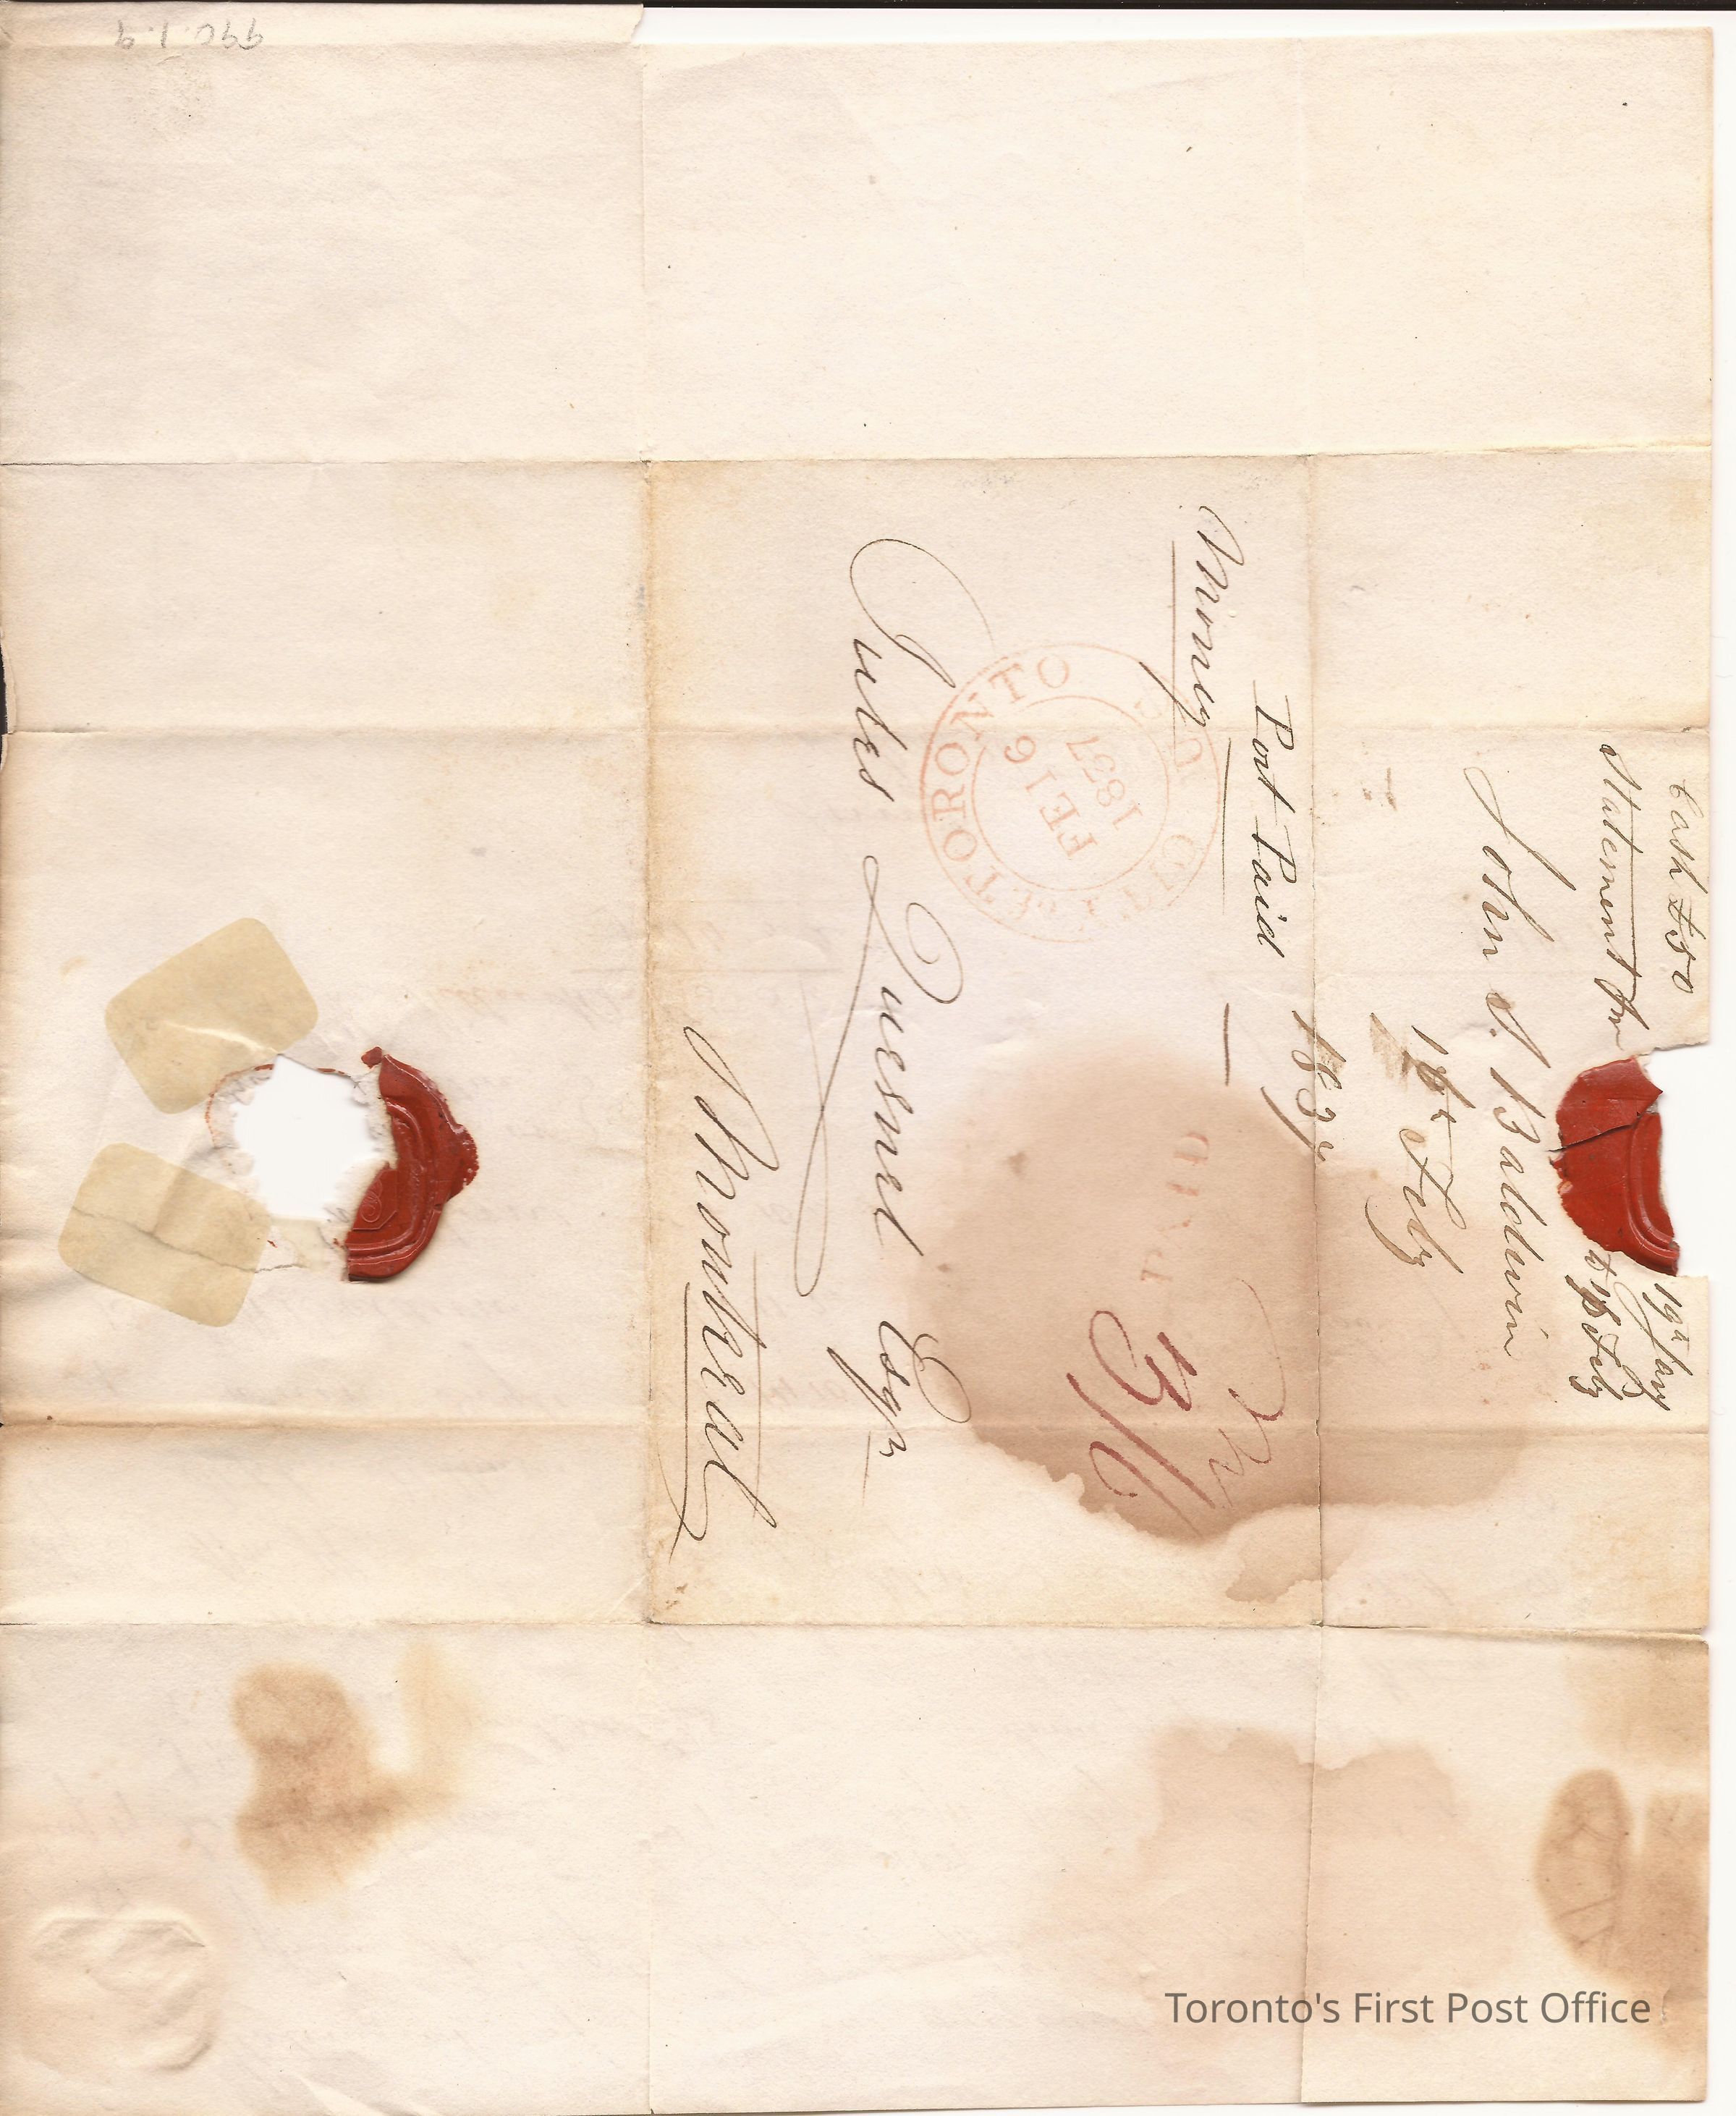 990.1.9
Cash £50
Statement fm
19th Jany
to 16 Feby
John S. Baldwin
16th Feby
1837
Post Paid
Money
CITY OF TORONTO U.C.
FE 16
1837
PAID
3/
Jules Quesnel Esqr
Montreal
Toronto's First Post Office